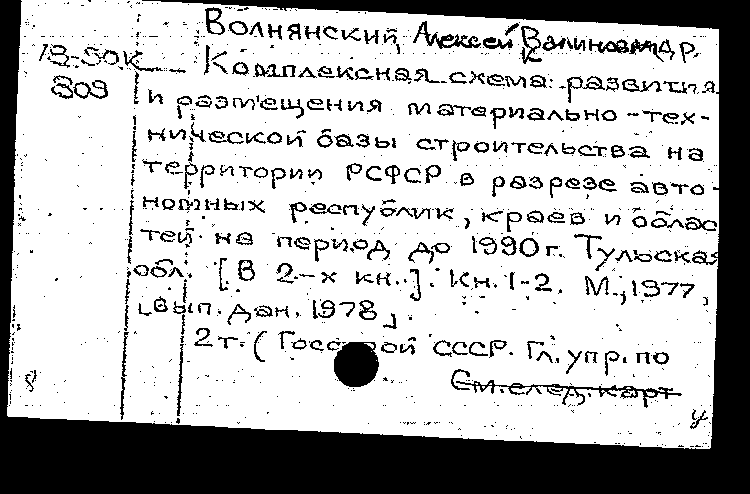 Волнянский, Алексей и др.
18-50к
809
Комплексная схема развития
и размещения материально-тех-
нической базы строительства на
территории РСФСР в разрезе авто-
номных республик, краев и облас
тей на период до 1990 г. Тульская
обл. [В 2-х кн.]. Кн. 1-2. М., 1977,
[вып. дан. 1978].
2 т. (Госс рой СССР. Гл. упр. по
См. след. карт
8
у